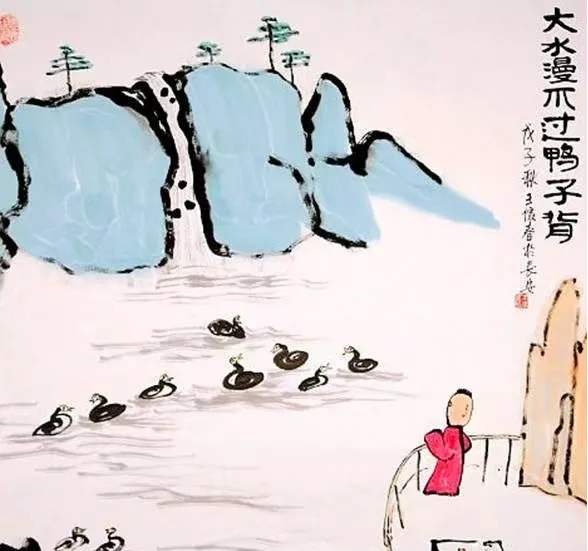 大水漫不过鸭子背
戊子秋王怀春於长安